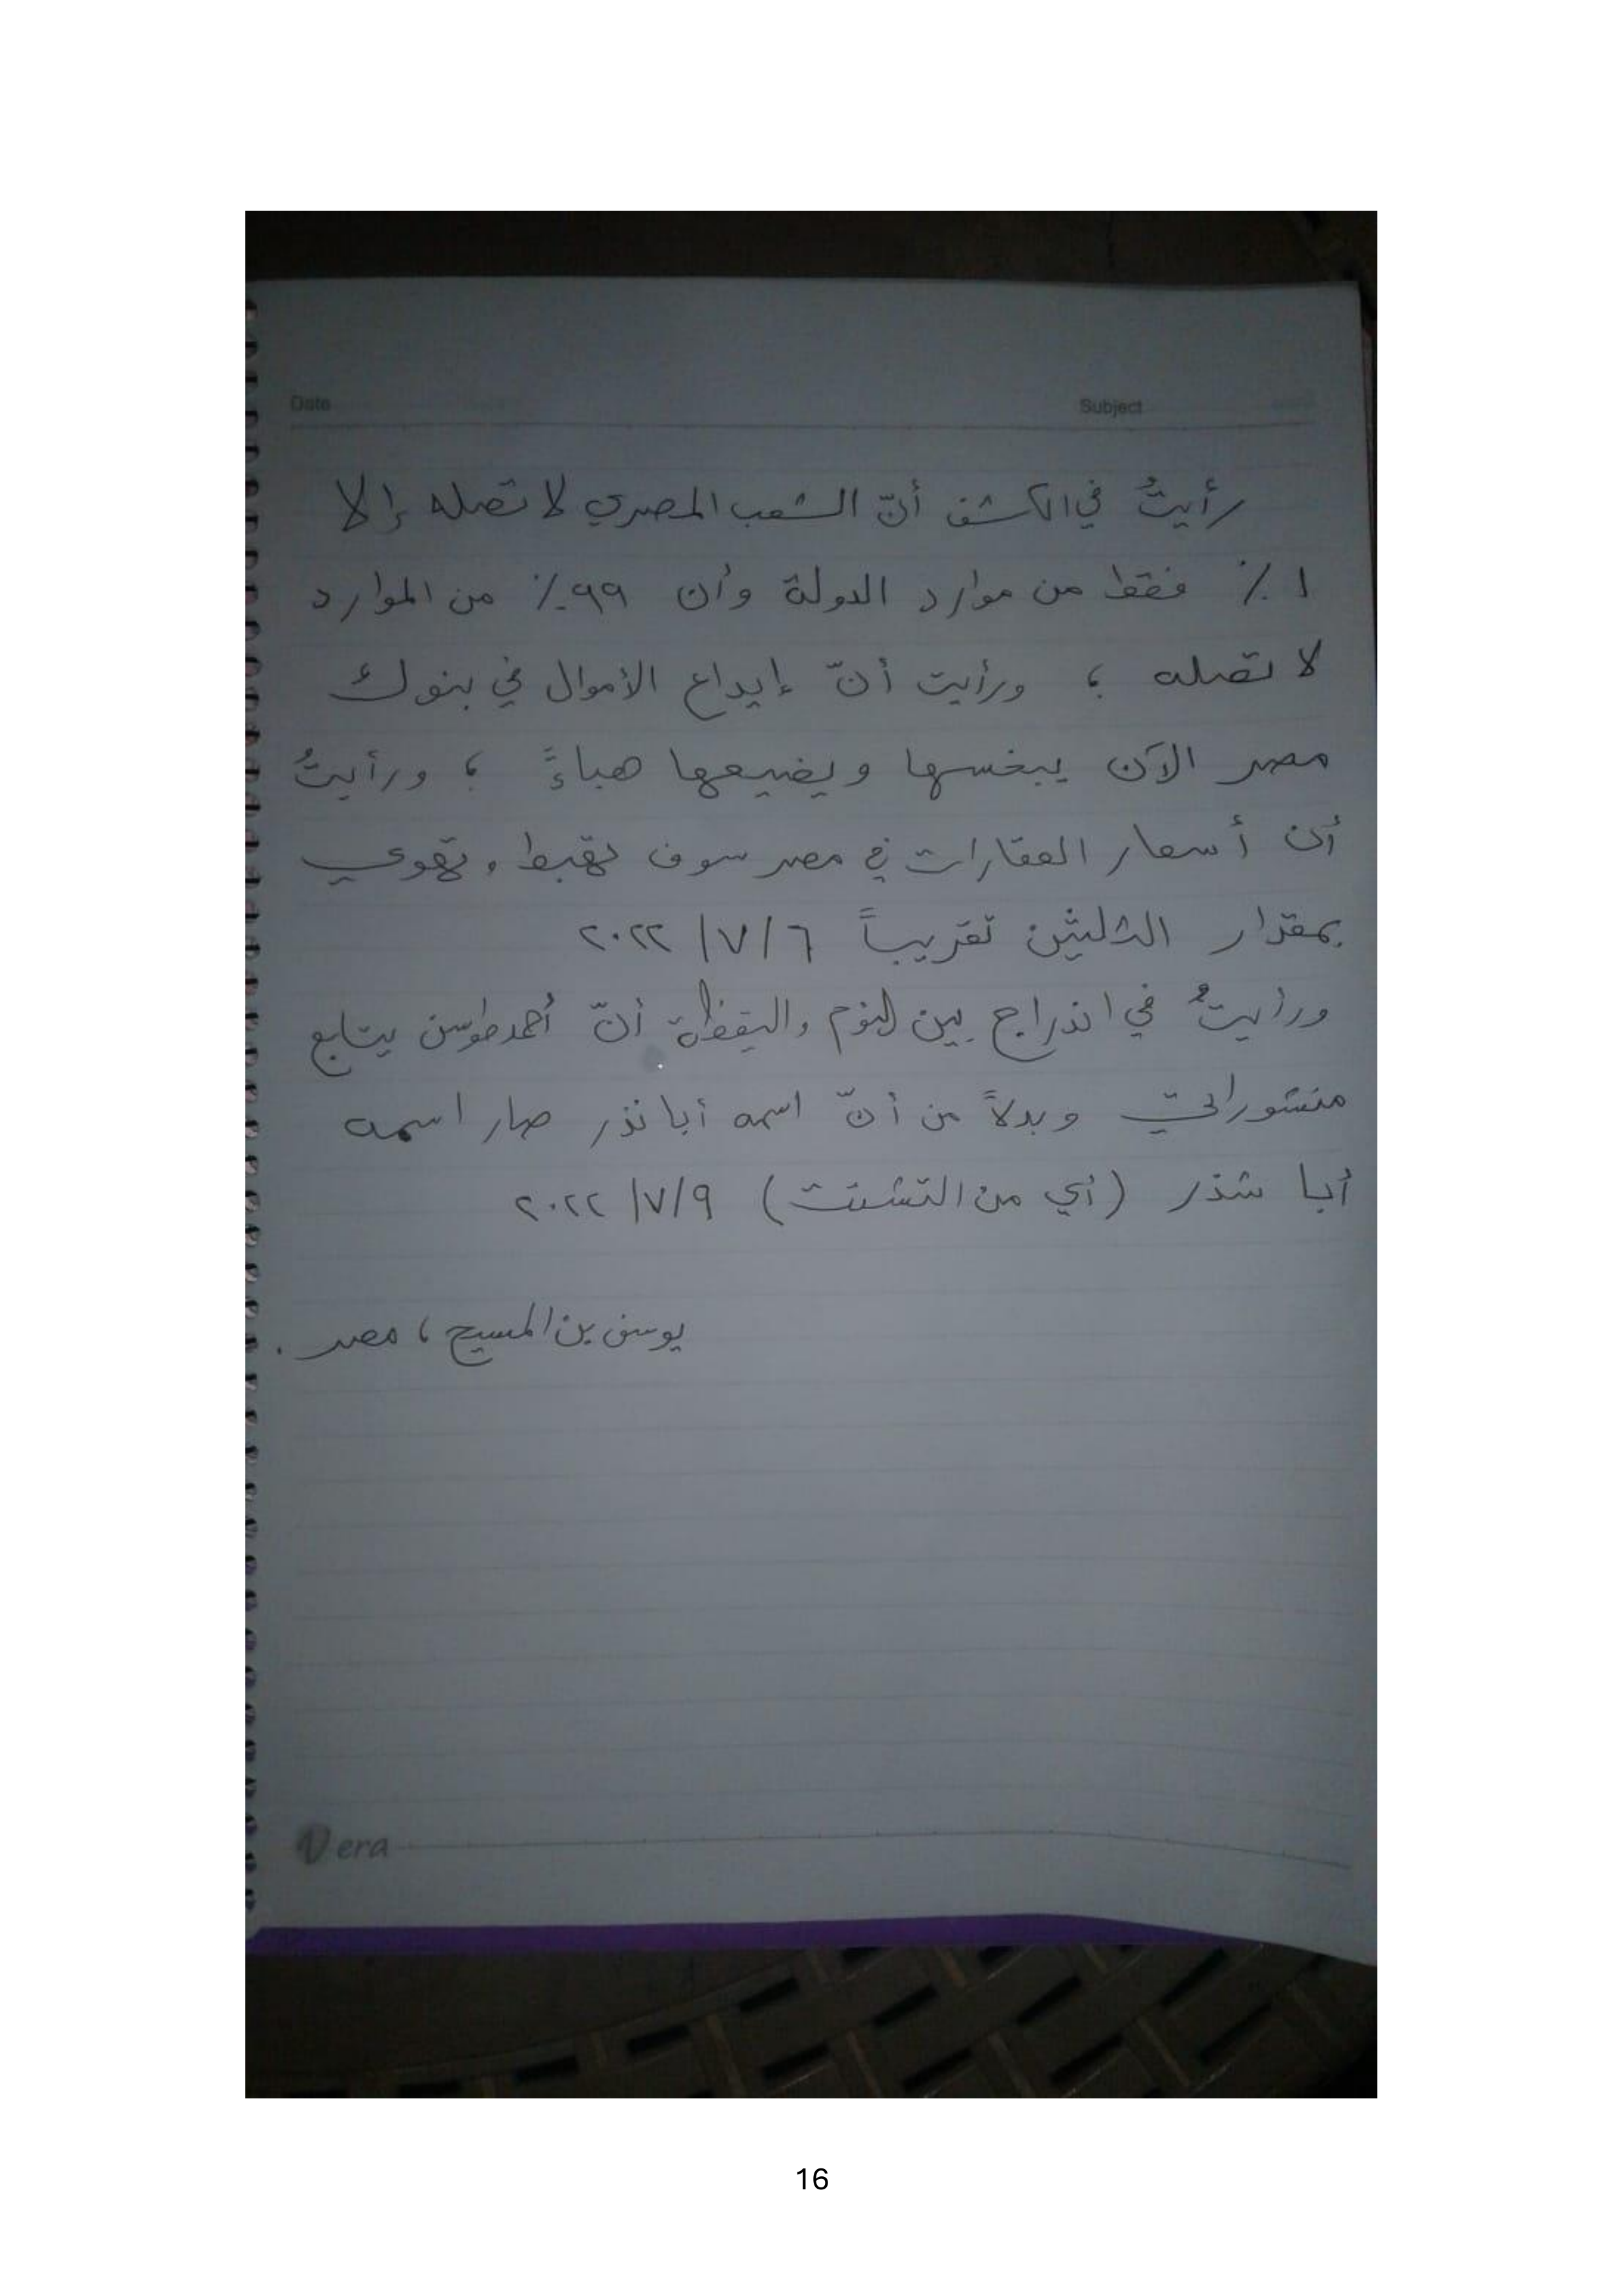 Date Subject
رأيتُ في الكشف أنّ الشعب المصري لا تصله إلا
١٪ فقط من موارد الدولة وأن ٩٩٪ من الموارد
لا تصله ؛ ورأيت أنّ إيداع الأموال في بنوك
مصر الآن يبخسها ويضيعها هباءً ؛ ورأيتُ
أن أسعار العقارات في مصر سوف تهبط وتهوي
بمقدار الثلثين تقريباً ٦/٧/٢٠٢٢
ورأيتُ في اندراج بين النوم واليقظة أنّ أحمد طوسن يتابع
منشوراتي وبدلاً من أنّ اسمه أبا نذر صار اسمه
أبا شذر (أي من التشتت) ٩/٧/٢٠٢٢
يوسف بن المسيح ، مصر .
Vera
16